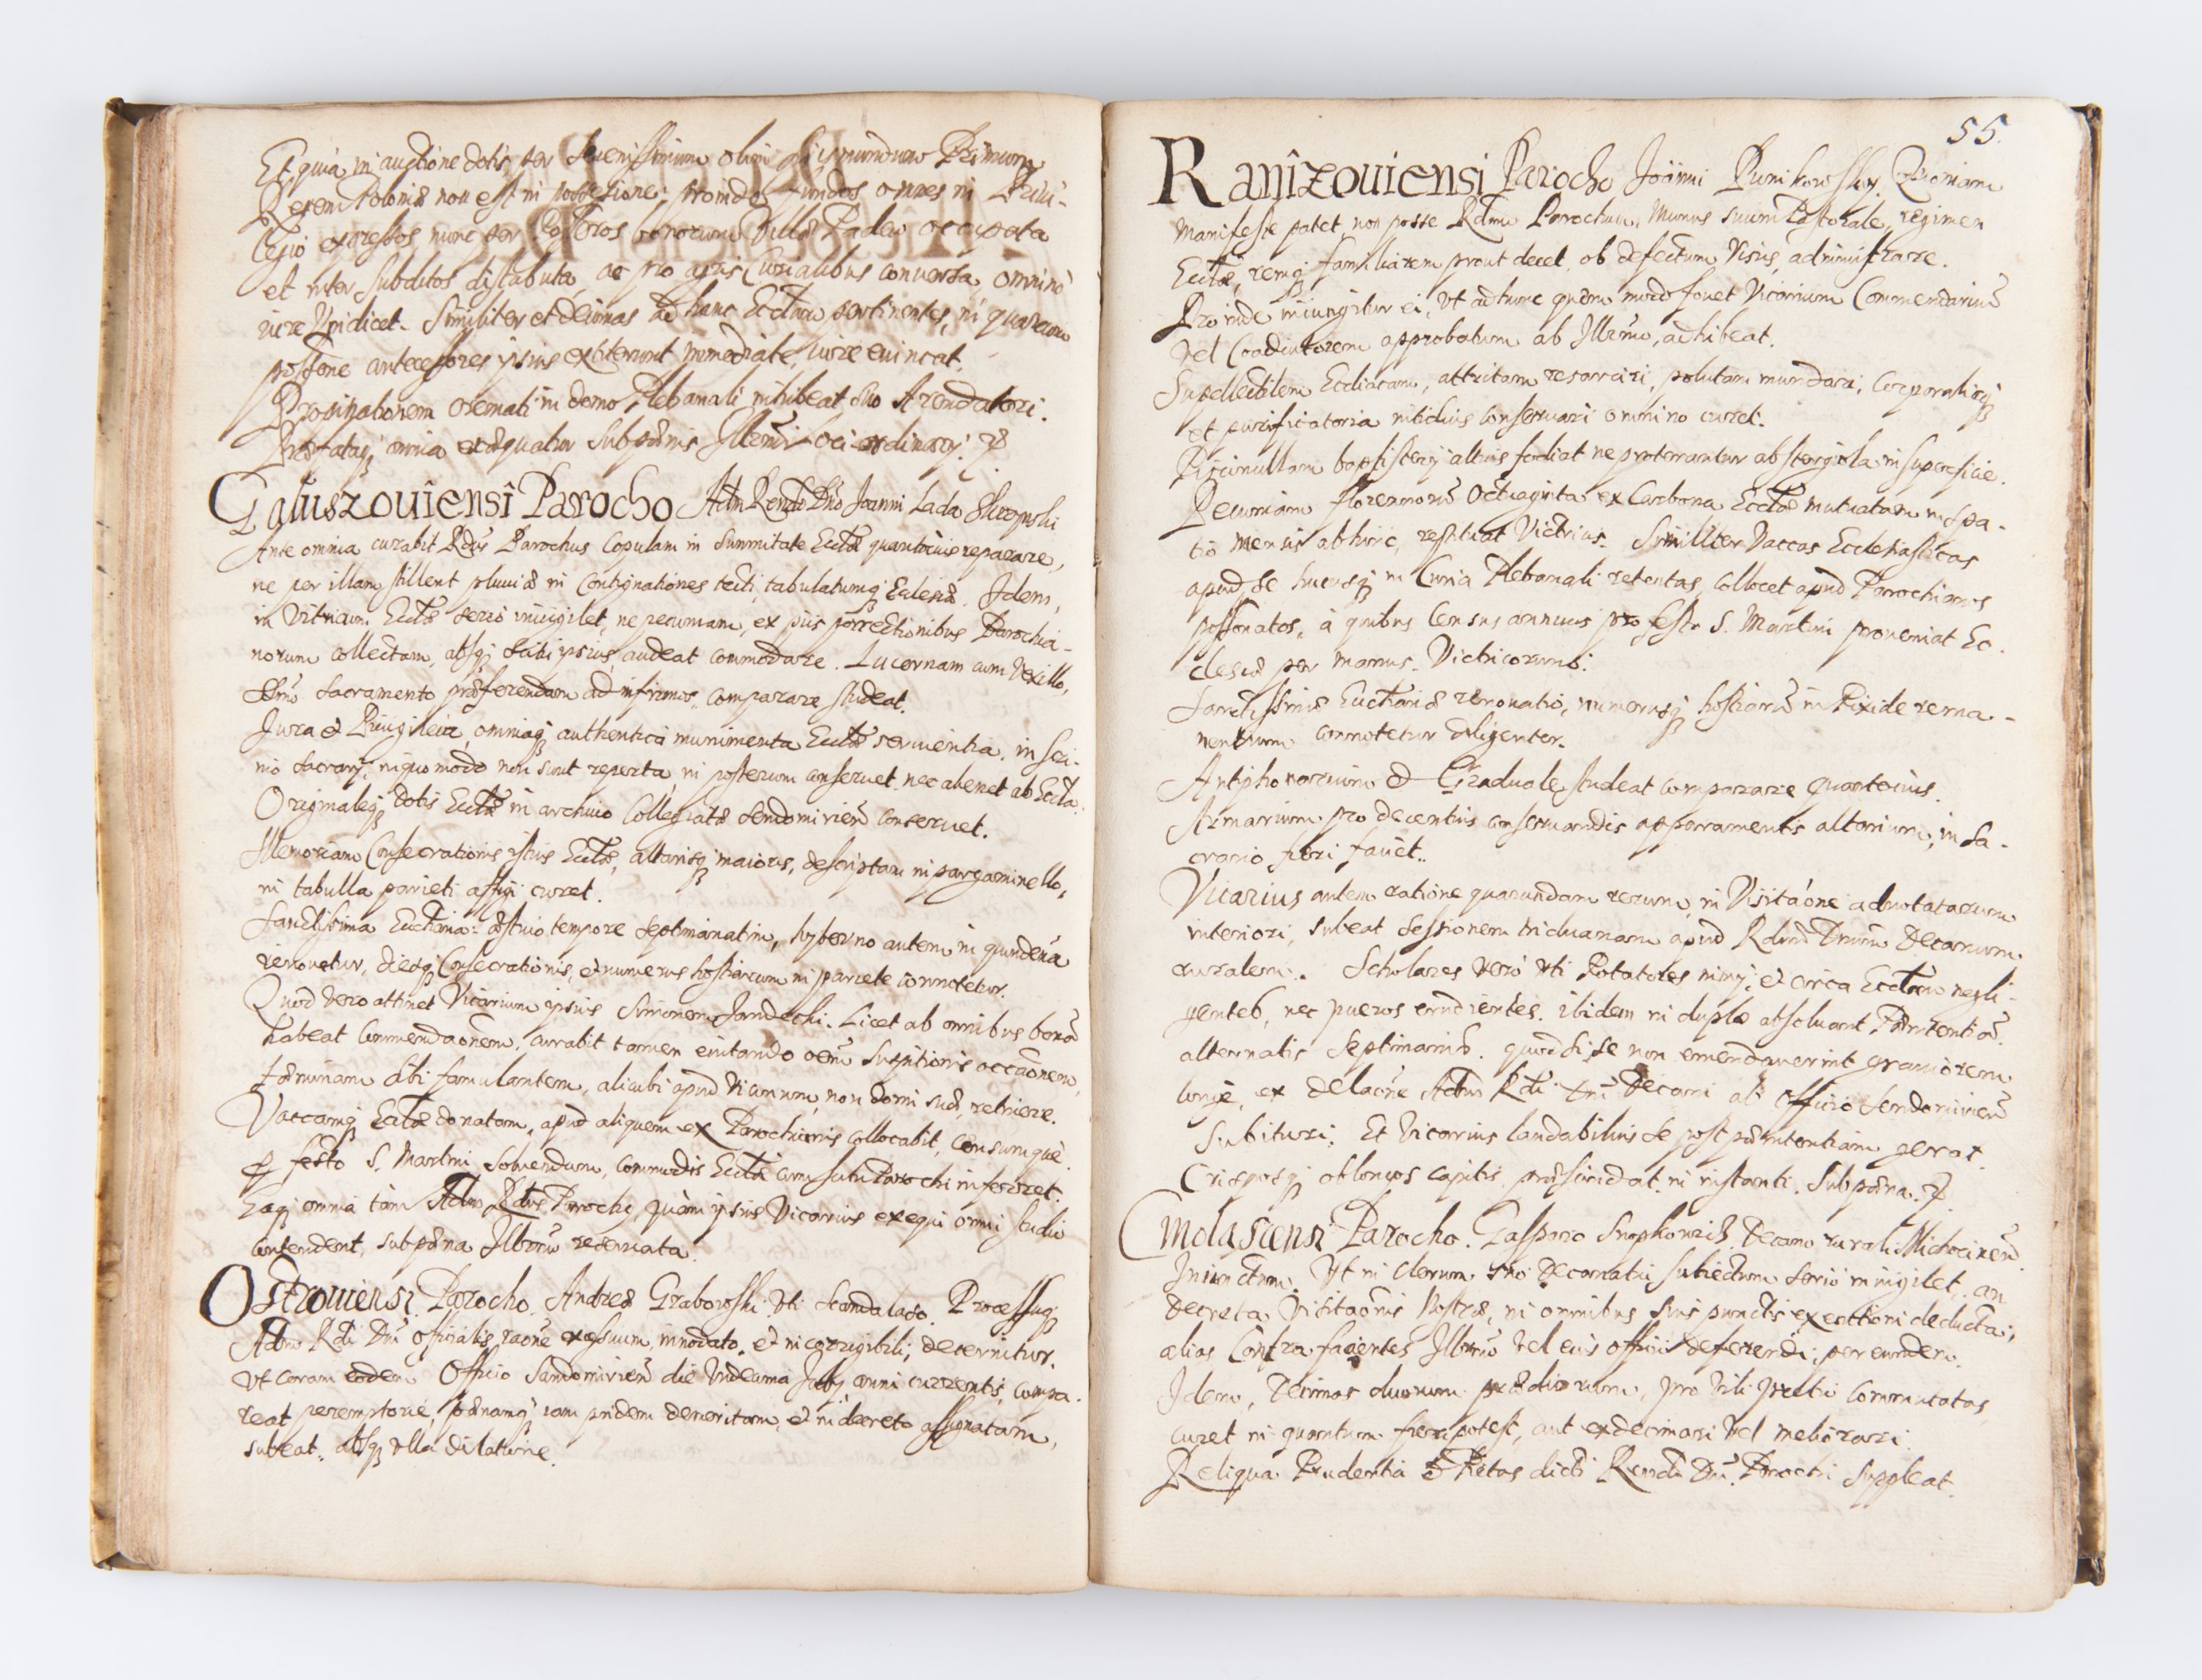 Et quia in auctione dotis per Serenissimum olim Sigismundum Primum
Regem Poloniæ non est in possessione, proinde fundos omnes in Privi-
legio expressos nunc per Possessores bonorum Villæ Padew occupata
et inter Subditos distributa, ac pro agris Curialibus conversa, omnino
iure Vindicet. Similiter et Decimas ad hanc Ecctam pertinentes, in quarum
possione antecessores ipsius extiterunt immediate, iure evincat.
Propinationem cremati in domo Plebanali inhibeat suo Arendatori.
Præfataq omnia exæquatur sub pœnis Illemi loci ordinarij.
Galuszouiensi Parocho Adm Rendo Dno Joanni Lada
Ante omnia curabit Rdus Parochus Copulam in Summitate Ecctæ quantocius reparare,
ne per illam stillent pluviæ in Contignationes tecti, tabulatumq Eclesiæ. Idem,
in Vitricum Ecctæ serio invigilet, ne pecuniam, ex piis porrectionibus Parochia-
norum collectam, absq scitu ipsius, audeat commodare. Lucernam cum Vexillo,
Ssmo Sacramento præferendam ad infirmos, comparare studeat.
Jura et Privigileia, omniaq authentica munimenta Ecctæ servientia, in scri-
nio Sacrarij, in quo modo non sunt reperta, in posterum conservet nec alienet ab Eccta.
Originaleq dotis Ecctæ in archivio Collegiatæ Sendomirien conservet.
Memoriam Consecrationis istius Ecctæ, altarisq maioris, descriptam in pargaminello,
in tabulla parieti affigi curet.
Sanctissima Euctaria æstivo tempore septimanatim, hyberno autem in quindena
renovetur, diesq Consecrationis, et numerus hostiarum in pariete connotetur.
Quod vero attinet Vicarium ipsius Simonem Jandecki. Licet ab omnibus bona
habeat Commendaonem, curabit tamen evitando oem Suspitionis occaonem,
fæminam sibi famulantem, alicubi apud vicinum, non domi suæ, retinere.
Vaccamq Ecctæ donatam, apud aliquem ex Parochianis collocabit, Censumque
p festo S. Martini solvendum, commodis Ecctæ cum scitu Parochi inferret.
Eaq omnia tam Adm Rdus Parochus, quàm ipsius Vicarius exequi omni studio
contendent, sub pœna Illrmo reservata.
Ostrouiensi Parocho. Andreæ Grabowski. Uti Scandaloso. Processuq
Adm Rdi Dni Officialis, raone excessuum, innodato, et incorrigibili, decernitur.
Ut Coram eodem Officio Sandomirien die Undecima July anni currentis, compa-
reat peremptorie, pœnamq iam pridem demeritam, et in decreto assignatam,
subeat absq ulla dilatione.
55.
Ranizouiensi Parocho Joanni Punikowsky. Quoniam
Manifeste patet, non posse Rdum Parochum, Munus suum Pastorale, regimen
Ecctæ, remq familiarem prout decet, ob defectum Visus, administrare.
Proinde iniungitur ei, Ut adhunc quem modo fovet Vicarium Commendariu
vel Coadiutorem approbatum ab Illrmo, adhibeat.
Supellectilem Eccliacam, attritam resarciri, polutam mundari, Corporaliaq
et purificatoria nitidius conservari omnino curet.
Piscinullam baptisterij altius fodiat ne proterrantur abstergiola in superficie.
Pecuniam florenorum Octuaginta ex Carbona Ecctæ mutuatam in spa-
tio mensis abhinc, restituat Victrius. Similiter Vaccas Ecclesiasticas
apud se hucusq in Curia Plebanali retentas, collocet apud Parochianos
possonatos, à quibus Census annuus pro festo S. Martini proveniat Ec-
clesiæ per manus Victricorum.
Sanctissimæ Euctariæ renovatio, numerusq hostiaru in Pixide rema-
nentium connotetur diligenter.
Antiphonarium et Graduale, studeat comparare quantocius.
Armarium pro decentius conservandis apparamentis altarium, in Sa-
crario fieri favèt.
Vicarius autem ratione quarundam rerum, in Visitaóne adnotatarum
interiori, subeat sessionem triduanam apud Rdum Dnum Decanum
ruralem. Scholares vero uti Potatores nimij, et circa Ecctam negli-
gentes, nec pueros erudientes, ibidem in duplo absolvant Pœnitentia
alternatis Septimanis. quod si se non emendaverint graviorem
longè, ex delacne Adm Rdi Dni Decani ab Officio Sendomirien
Subituri. Et Vicarius laudabilius se post pœnitentiam gerat.
Crisposq oblongos capitis præscindat in instanti. Sub pœna.
Cmolasiensi Parocho. Gasparo Snopkowicz, Decano rurali Miechocinen
Iniunctum. Ut in Clerum, suo Decanatui subiectum serio invigilet, an
Decreta Visitaonis Nostræ, in omnibus suis punctis exectioni deducta;
alias Contra facientes Illrmo vel eius officii deferendi, per eundem.
Idem, Decimas duorum prædiorum, pro vili pretio Commutatas,
curet in quantum fieri potest, aut exdecimari vel meliorari.
Reliqua Prudentia et Pietas dicti Rendi Dni Parochi Suppleat.